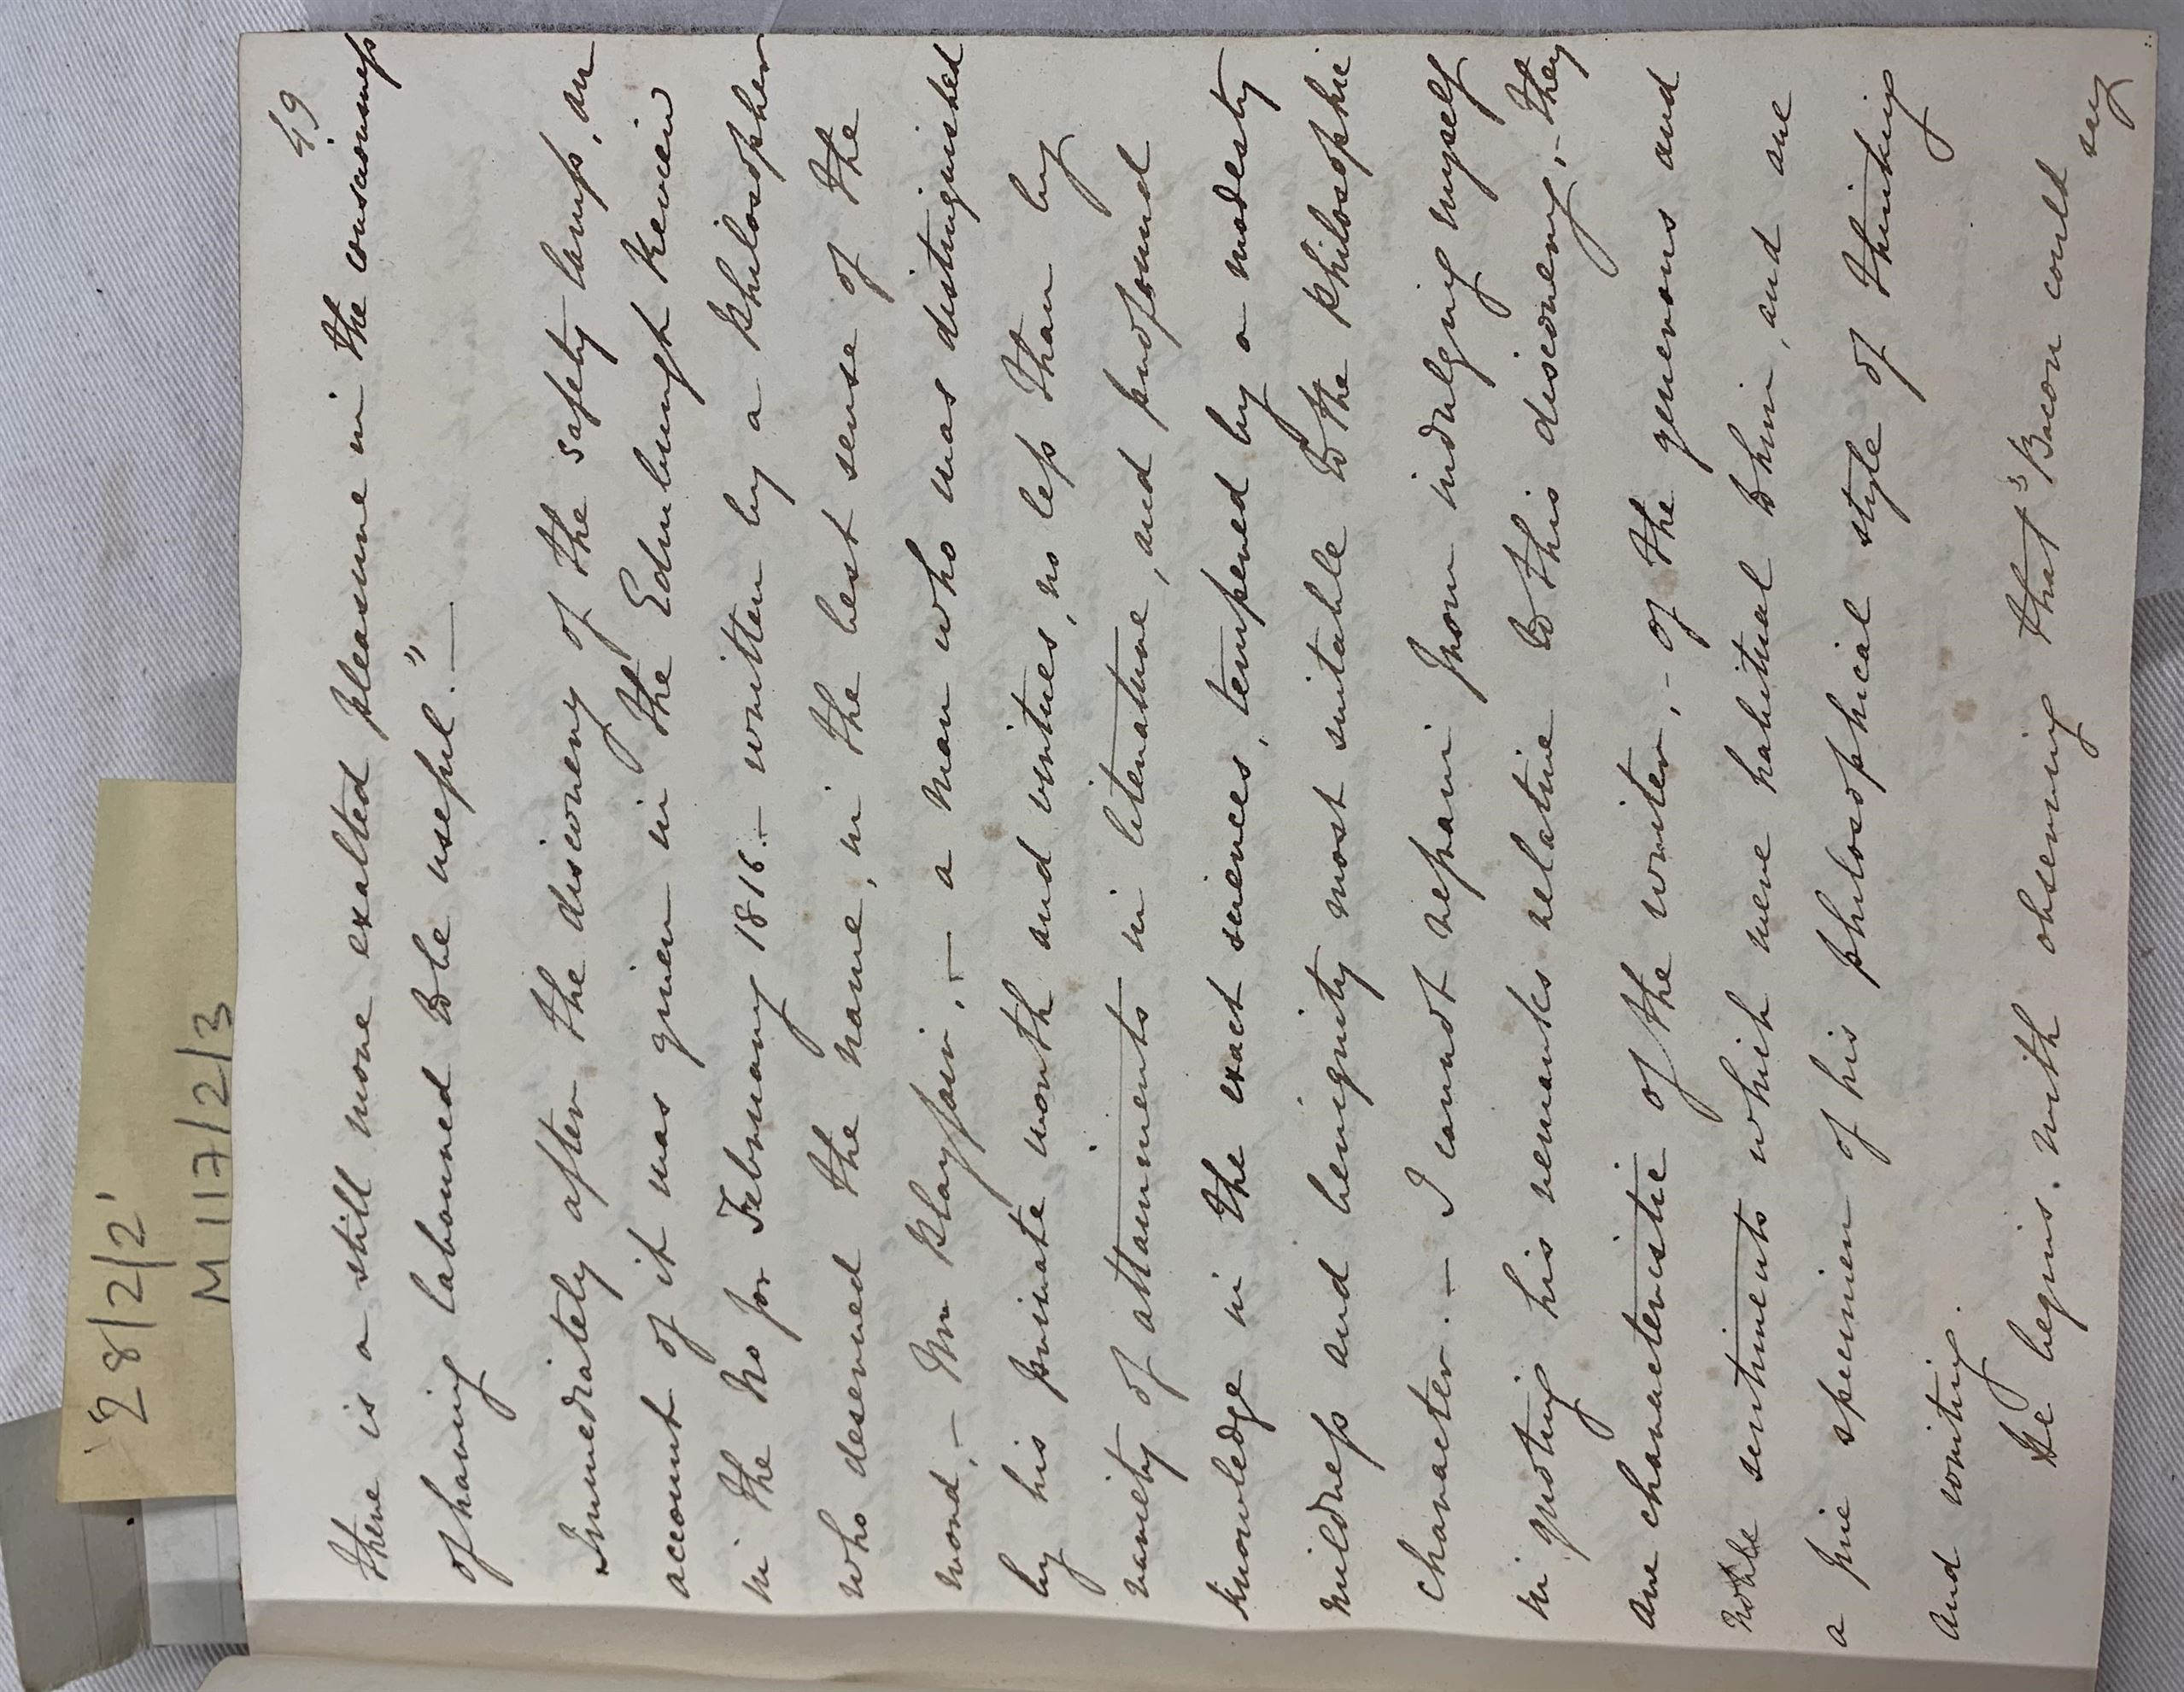 '28/2/2'
M117/2/3
49
there is a still more exalted pleasure in the consciousness
of having laboured to be useful." —
Immediately after the discovery of the safety lamp, an
account of it was given in the Edinburgh Review
in the No for February 1816. — written by a Philosopher
who deserved the name, in the best sense of the
word, — Mr Playfair, — a man who was distinguished
by his private worth and virtues, no less than by
variety of attainments in literature, and profound
knowledge in the exact sciences, tempered by a modesty
mildness and benignity most suitable to the philosophic
character. — I cannot refrain from indulging myself
in quoting his remarks relative to this discovery, – they
are characteristic of the writer, – of the generous and
noble sentiments which were habitual to him, and are
a fine specimen of his philosophical style of thinking
and writing.
He begins. with observing that "Bacon could
say